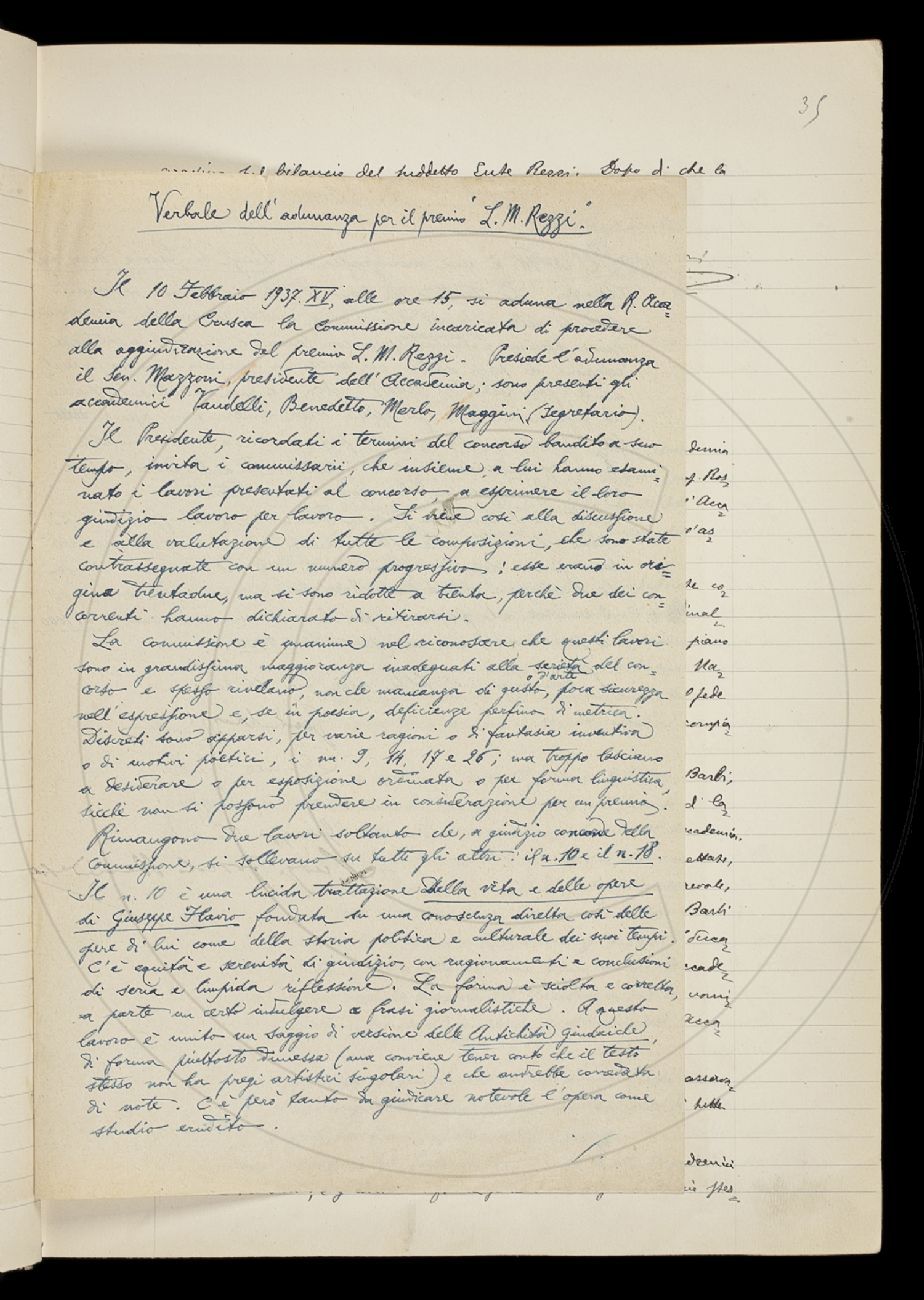 35
del bilancio del suddetto Ente Rezzi. Dopo di che la
Verbale dell'adunanza per il premio "L. M. Rezzi".
Il 10 Febbraio 1937. XV, alle ore 15, si aduna nella R. Acca=
demia della Crusca la Commissione incaricata di procedere
alla aggiudicazione del premio L. M. Rezzi. Presiede l'adunanza
il Sen. Mazzoni, presidente dell'Accademia; sono presenti gli
accademici Vandelli, Benedetto, Merlo, Maggini (segretario).
Il Presidente, ricordati i termini del concorso bandito a suo
tempo, invita i commissarii, che insieme a lui hanno esami=
nato i lavori presentati al concorso, a esprimere il loro
giudizio lavoro per lavoro. Si viene così alla discussione
e alla valutazione di tutte le composizioni, che sono state
contrassegnate con un numero progressivo; esse erano in ori=
gine trentadue, ma si sono ridotte a trenta, perché due dei con=
correnti hanno dichiarato di ritirarsi.
La commissione è unanime nel riconoscere che questi lavori
sono in grandissima maggioranza inadeguati alla serietà del con=
corso e spesso rivelano, non che mancanza di gusto, o d'arte poca sicurezza
nell'espressione e, se in poesia, deficienze perfino di metrica.
Discreti sono apparsi, per varie ragioni o di fantasia inventiva
o di motivi poetici, i nn. 9, 14, 17 e 26; ma troppo lasciano
a desiderare o per esposizione ordinata o per forma linguistica,
sicché non si possono prendere in considerazione per un premio.
Rimangono due lavori soltanto che, a giudizio concorde della
Commissione, si sollevano su tutti gli altri: il n. 10 e il n. 18.
Il n. 10 è una lucida trattazione della vita e delle opere
di Giuseppe Flavio fondata su una conoscenza diretta così delle
opere di lui come della storia politica e culturale dei suoi tempi.
C'è equità e serenità di giudizio, con ragionamenti e conclusioni
di seria e limpida riflessione. La forma è sciolta e corretta,
a parte un certo indulgere a frasi giornalistiche. A questo
lavoro è unito un saggio di versione delle Antichità giudaiche,
di forma piuttosto dimessa (ma conviene tener conto che il testo
stesso non ha pregi artistici singolari) e che andrebbe corredata
di note. C'è però tanto da giudicare notevole l'opera come
studio erudito.
demia
Ros
Acca
piano
fede
Barbi,
Barbi
tutte